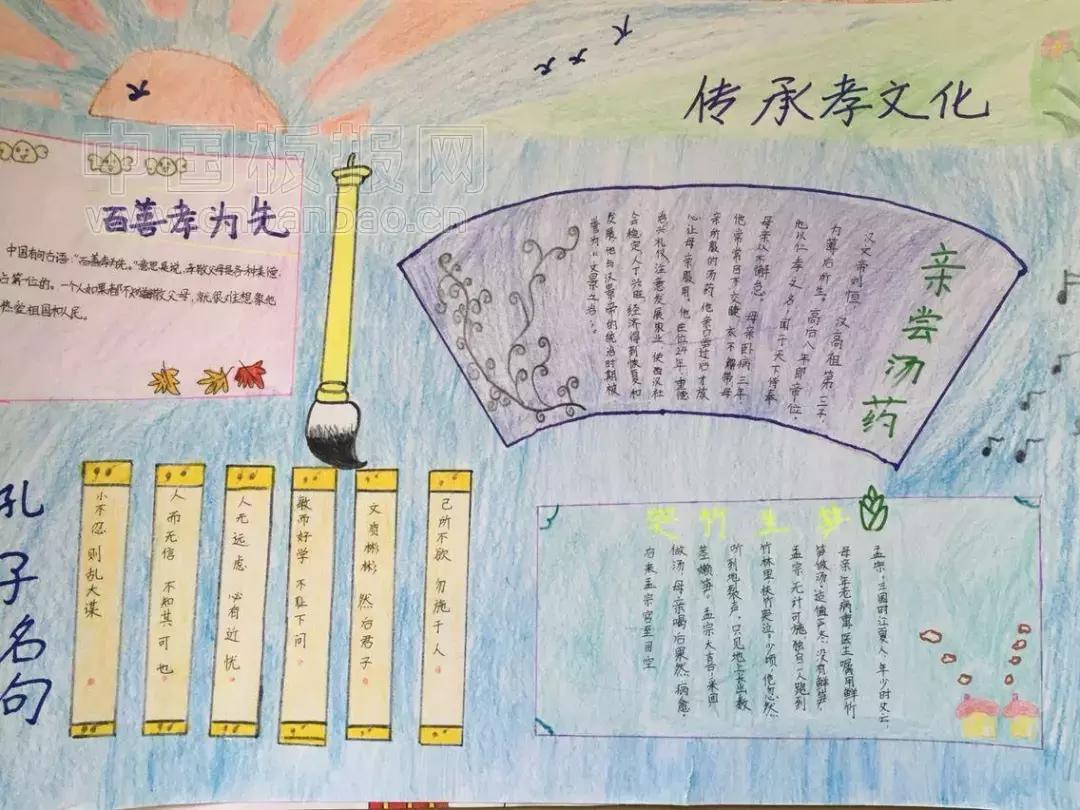 传承孝文化
中国板报网
百善孝为先
中国有句古语:“百善孝为先。”意思是说,孝敬父母是各种美德
占第一位的。一个人如果都不孝敬父母,就很难想象他
热爱祖国和人民。
亲尝汤药
汉文帝刘恒,汉高祖第三子,
为薄后所生。高后八年即帝位。
他以仁孝之名,闻于天下侍奉
母亲从不懈怠。母亲卧病三年
他常常目不交睫,衣不解带母
亲所服的汤药,他亲口尝过后才放
心让母亲服用。他在位24年,重德
治兴礼仪,注意发展农业,使西汉社
会稳定人丁兴旺,经济得到恢复和
发展,他与汉景帝的统治时期被
誉为“文景之治”。
孔子名句
己所不欲 勿施于人
文质彬彬 然后君子
敏而好学 不耻下问
人无远虑 必有近忧
人而无信 不知其可也
小不忍则乱大谋
哭竹生笋
孟宗,三国时江夏人,年少时父亡,
母亲年老病重,医生嘱用鲜竹
笋做汤。适值严冬,没有鲜笋,
孟宗无计可施,独自一人跑到
竹林里,扶竹哭泣。少顷,他忽然
听到地裂声,只见地上长出数
茎嫩笋。孟宗大喜,采回
做汤,母亲喝后果然病愈。
后来孟宗官至司空